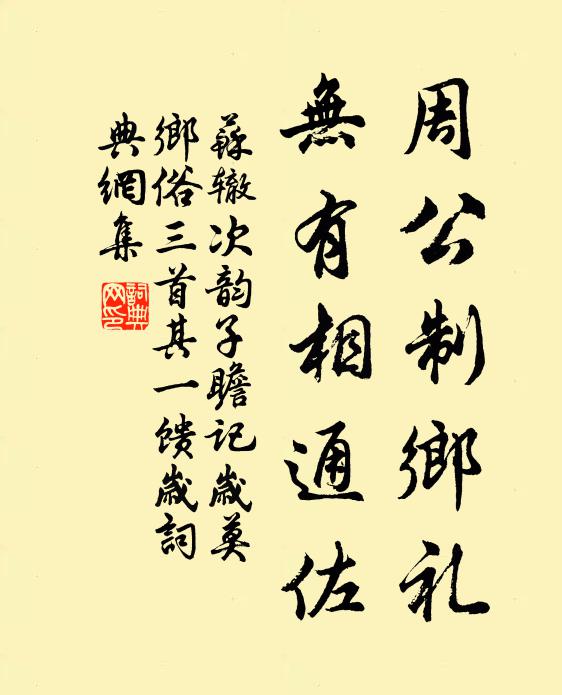 周公制鄉礼
無有相通佐
蘇辙次韵子瞻记歲莫
鄉俗三首其一馈歲詞
典網集
詞典
网印